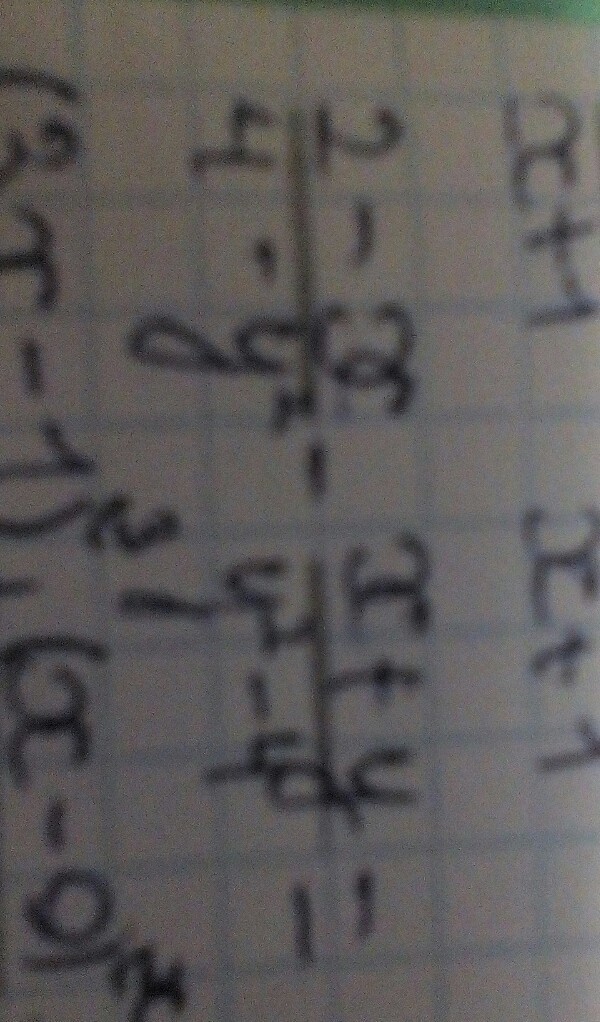 x+1 x+1
2-x/4-y² - x+y/y²-4 =
(3x-1) - (x-